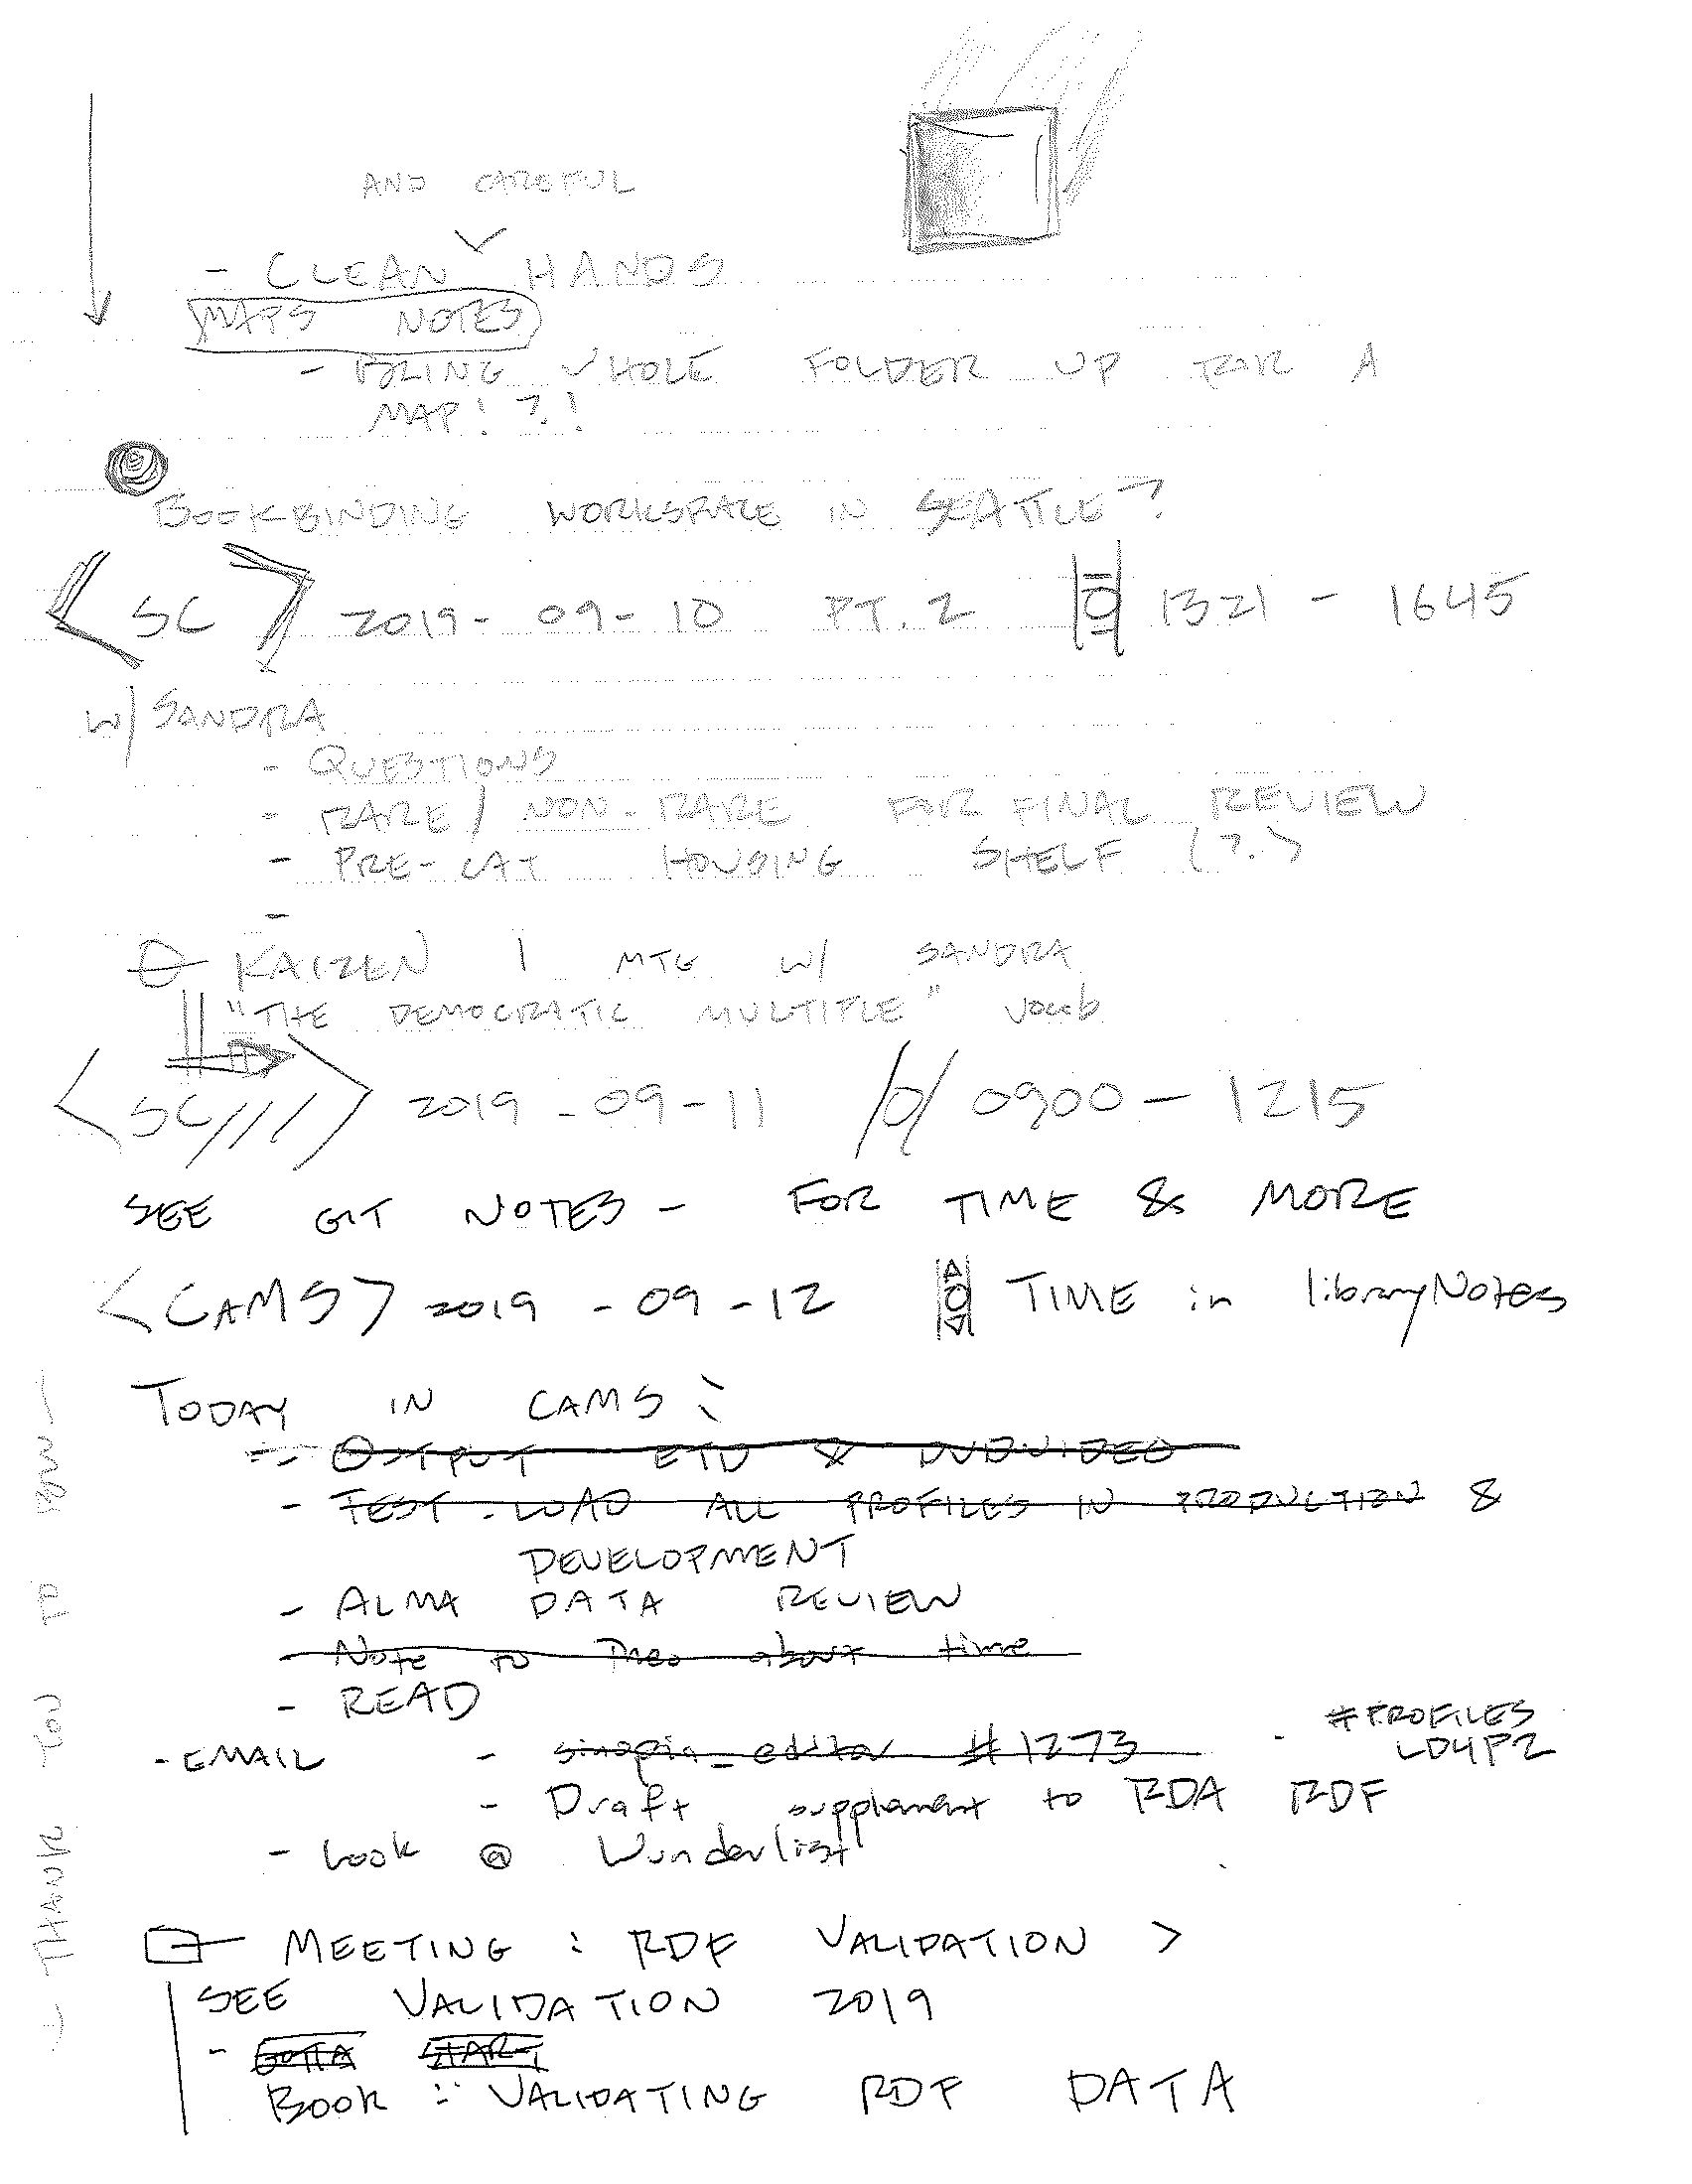 AND CAREFUL
- CLEAN HANDS
MAPS NOTES
- BRING WHOLE FOLDER UP FOR A
MAP! ?!
BOOKBINDING WORKSPACE IN SEATTLE?
<SC> 2019-09-10 PT.2 1321 - 1645
W/ SANDRA
- QUESTIONS
- RARE / NON-RARE FOR FINAL REVIEW
- PRE-CAT HOUSING SHELF (?)
-
KAIZEN 1 MTG W/ SANDRA
"THE DEMOCRATIC MULTIPLE" vocab
<SC///> 2019-09-11 /0/ 0900 - 1215
SEE GIT NOTES - FOR TIME & MORE
<CAMS> 2019-09-12 TIME in libraryNotes
TODAY IN CAMS:
- OUTPUT ETD & DVDVIDEO
- TEST-LOAD ALL PROFILES IN PRODUCTION &
DEVELOPMENT
- ALMA DATA REVIEW
- Note to Theo about time
- READ
- EMAIL - sinopia_editor #1273 - #PROFILES
LD4P2
- Draft supplement to RDA RDF
- Look @ Wunderlist
MEETING : RDF VALIDATION >
SEE VALIDATION 2019
- GOTTA START
BOOK :: VALIDATING RDF DATA
THANK YOU TO